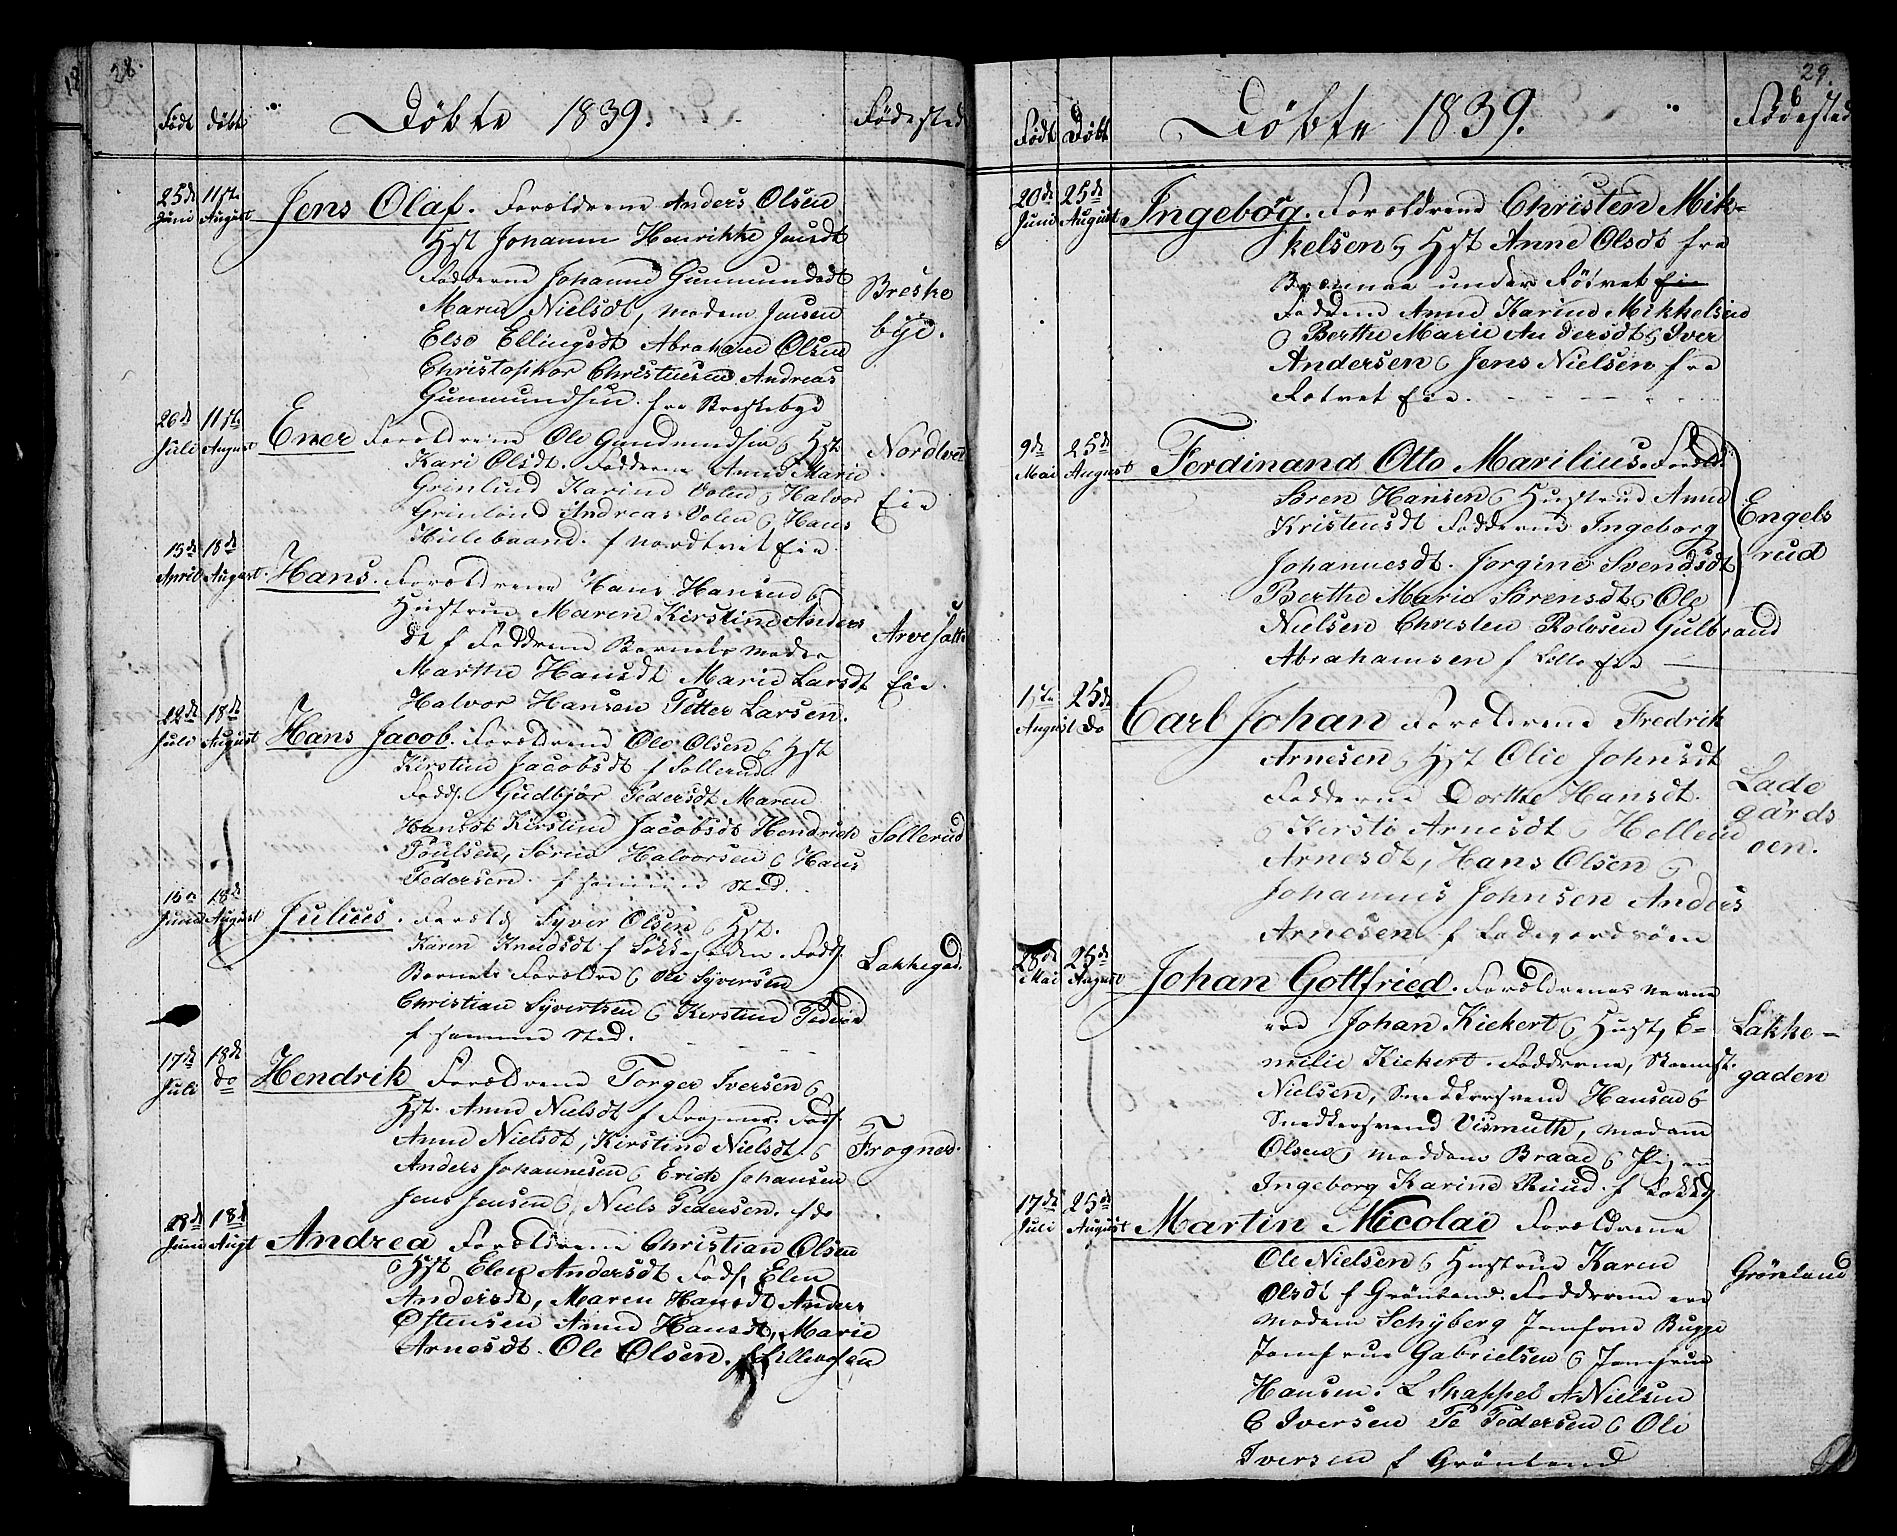 28.
Født døbt Døbte 1839. Fødested
25de 11te
Juni August
Jens Olaf. Forældrene Anders Olsen
Hst Johanne Henrikke Jensdt
Fadderne Johanne Gunmundsdt
Maren Nielsdt, Madem Jensen
Else Ellingsdt Abraham Olsen
Christophor Christensen Andreas
Gunmundsen. fra Breskebye
Breske
bye.
26de 11te
Juli August
Ener Forældrene Ole Gundmundsen & Hst
Kari Olsdt. Fadderne Anne Marie
Grinlund Karine Volen & Halvor
Grinlund Andreas Volen & Hans
Hillebrand. f Nordtvet Eie
Nordtvet
Eie
15de 18de
April August
Hans. Forældrene Hans Hansen &
Hustrue Maren Kirstine Anders
dt f Faddrene Barnets Moder
Marthe Hansdt Marie Larsdt
Halvor Hansen Petter Larsen.
Eie.
22de 18de
Juli August
Hans Jacob. Forældrene Ole Olsen & Hst
Kirstine Jacobsdt f Sollerud
Fadds. Gudbjør Pedersdt Maren
Hansdt Kirstine Jacobsdt Hendrich
Poulsen, Søren Halvorsen & Hans
Pedersen. f samme Sted.
Sollerud
18de
Juni August
Julius. Foreld Syver Olsen & Hst.
Karen Knudsdt f Fadd.
Barnets Forældre & Ole Syversen
Christian Syvertsen & Kirstine Peders
f samme Sted.
Lakkegad.
17de 18de
Juli do
Hendrik Forældrene Torger Iversen &
Hst. Anne Nielsdt f Frogner. Fad.
Anne Nielsdt, Kirstine Nielsdt &
Anders Johannesen & Erich Johansen
Jens Jensen & Niels Pedersen. f do
Frogner.
18de
Juni Augt
Andrea Forældrene Christian Olsen
& Hst Elen Andersdt Fadd, Elen
Andersdt, Maren Hansdt Anders
Ostensen Anne Hansdt, Marie
Arnesdt. Ole Olsen.
29.
6
Født Døbt Døbte 1839. Fødested
20de 25de
Juni August
Ingebøg. Forældrene Christen Mik-
kelsen & Hst Anne Olsdt fra
under Føtvet Eie
Faddene Anne Karine Mikkelsen
& Berthe Marie Andersdt & Iver
Andersen & Jens Nielsen fra
Føtvet Eie.
9de 25de
Mai August
Ferdinand Otto Marilius. Foreld.
Søren Hansen & Hustrue Anne
Kristensdt Fadderne Ingeborg
Johannesdt. Jorgine Svendsdt
Berthe Marie Sørensdt & Ole
Nielsen Christen Rolvsen Gulbrand
Abrahamsen f
Engels
rud
25de
August do
Carl Johan Forældrene Fredrik
Arnesen & Hst Olie Johnsdt
Fadderne Dorthe Hansdt.
& Kirsti Arnesdt & Hellene
Arnesdt, Hans Olsen &
Johannes Johnsen Anders
Arnesen f Ladegardsøen
Lade
gårds
oen.
28de 25de
Mai August
Johan Gottfried. Forældrenes Navne
ere Johan Kiekert & Hust, E-
milie Kiekert. Fadderne,
Nielsen, Snedkersvend Hansen &
Snedkersvend Vismuth, Madam
Olsen & Maddam Braae & Pigen
Ingeborg Karine Ruud. f Lakkg
Lakke-
gaden
17de 25de
Juli August
Martin Nicolai Forældrene
Ole Nielsen & Hustrue Karen
Olsdt f Grønland. Fadderne ere
Madam Schyberg Jomfrue Bugge
Jomfrue Gabrielsen & Jomfrue
Hansen. L Skappel A Nielsen
C Iversen Pe Pedersen & Ole
Iversen f Grønland
Grønland